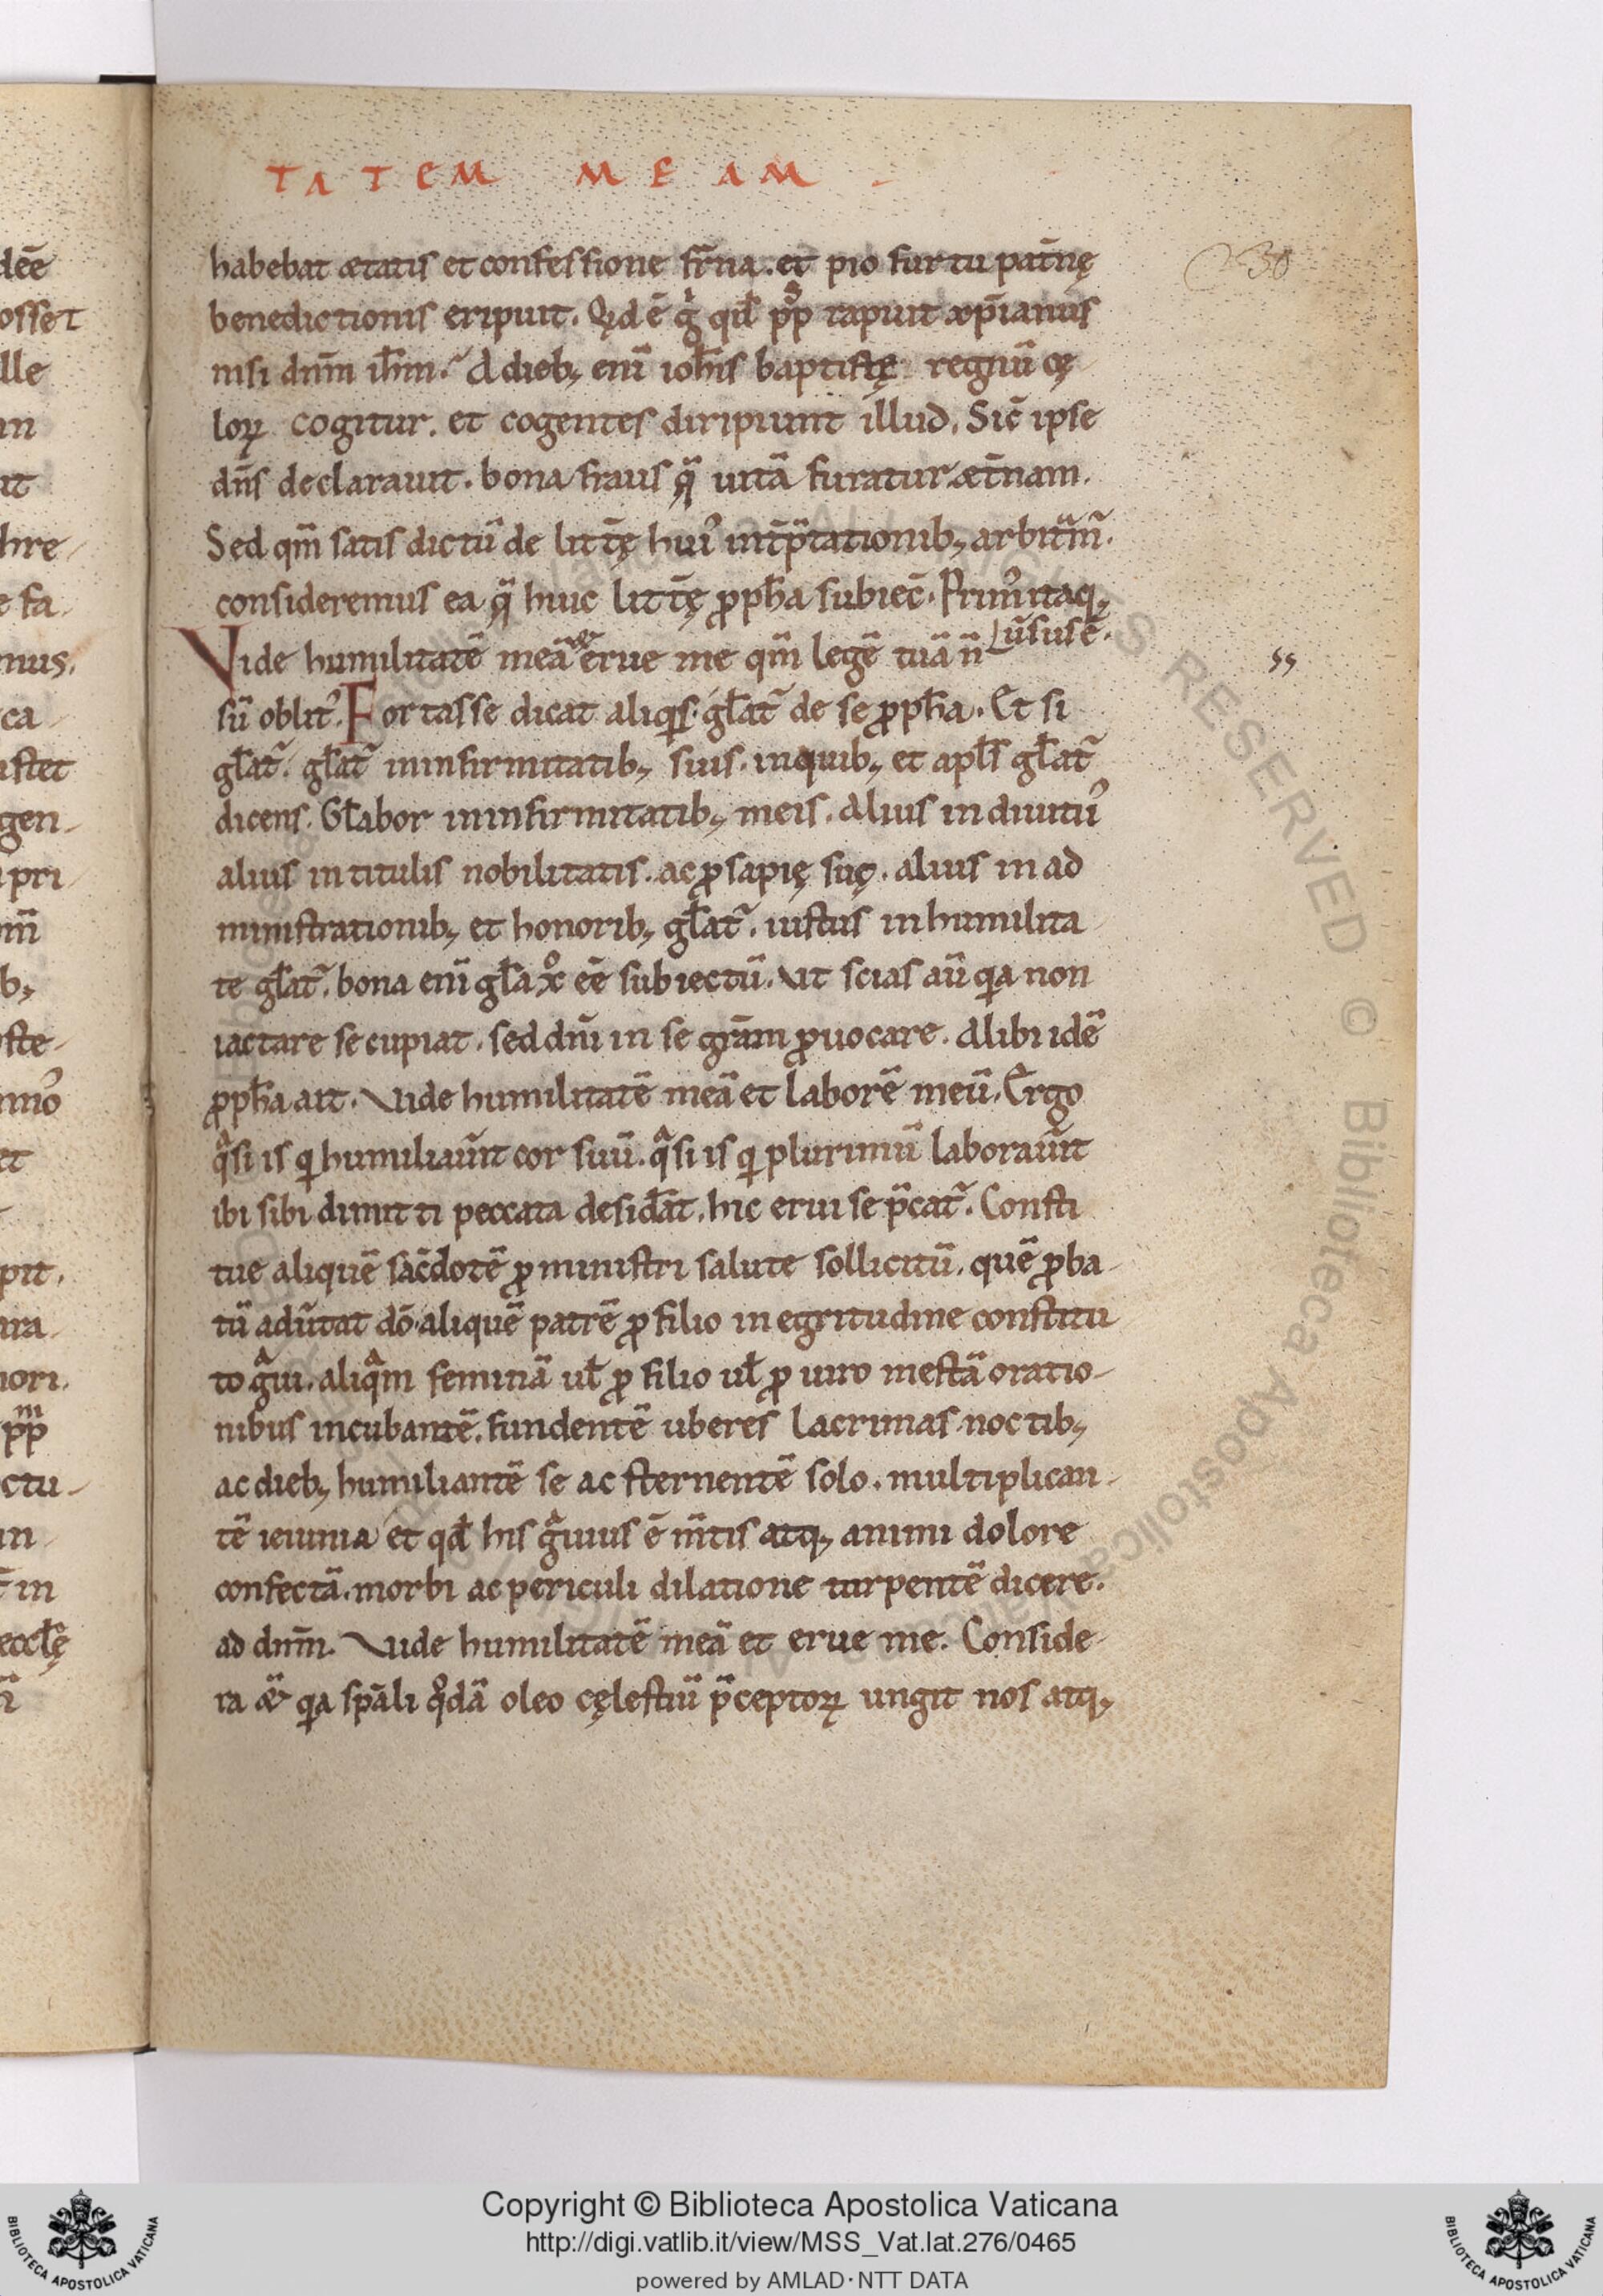 TATEM MEAM
230
habebat ætatis et confessione fr̄na. et pio furtu pat̄nę
benedictionis eripuit. Qd ē gͥ qđ pp̄ rapuit xp̄ianus
nisi dnm̄ ihm̄. A dieb; eni͂ ioh̄is baptistę regnū cę
loꝝ cogitur. et cogentes diripiunt illud. Sic̄ ipse
dn̄s declarauit. bona fraus q̄ uitā furatur æt̄nam.
Sed qm̄ satis dictū de litt̄ę hui᾿ int̄p̄tationib; arbitͣm᷑.
consideremus ea q̄ huic litt̄ę ꝓph̄a subiec̄. Prim᾿ itaq;
ūsus ē.
Vide humilitatē meā & erue me qm̄ legē tuā n̄
55
sū oblit᾿. Fortasse dicat aliqs. gl̄at᷑ de se ꝓph̄a. Et si
gl̄at᷑. gl̄at᷑ in infirmitatib; suis. in quib; et apl̄s gl̄at᷑
dicens. Gl̄abor in infirmitatib; meis. Alius in diuitii᾿
alius in titulis nobilitatis. ac ꝓsapię suę. alius in ad
ministrationib; et honorib; gl̄at᷑. iustus in humilita
te gl̄at᷑. bona eni͂ gl̄a xͦ eē subiectū. Vt scias aū qa non
iactare se cupiat. sed dnī in se grām ꝓuocare. Alibi idē
ꝓph̄a ait. Vide humilitatē meā et laborē meū. Ergo
qͣsi is qi humiliaūit cor suū. qͣsi is qi plurimū laboraūit
ibi sibi dimitti peccata desid̄at. hic erui se p̄cat᷑. Consti
tue aliquē sac̄dotē ꝓ ministri salute sollicitū. quē ꝓba
tū adūtat dō. aliquē patrē ꝓ filio in egritudine constitu
to gͣui. aliqͣm feminā ul̄ ꝓ filio ul̄ ꝓ uiro mestā oratio-
nibus incubantē. fundentē uberes lacrimas noctib;
ac dieb; humiliantē se ac sternentē solo. multiplican
tē ieiunia et qđ his gͣuius ē m̄tis atq; animi dolore
confectā. morbi ac periculi dilatione turpentē dicere.
ad dnm̄. Vide humilitatē meā et erue me. Conside
ra & qa sp̄ali qͦdā oleo cęlestiū p̄ceptoꝝ ungit nos atq;
Copyright © Biblioteca Apostolica Vaticana
http://digi.vatlib.it/view/MSS_Vat.lat.276/0465
powered by AMLAD·NTT DATA
BIBLIOTECA APOSTOLICA VATICANA
BIBLIOTECA APOSTOLICA VATICANA